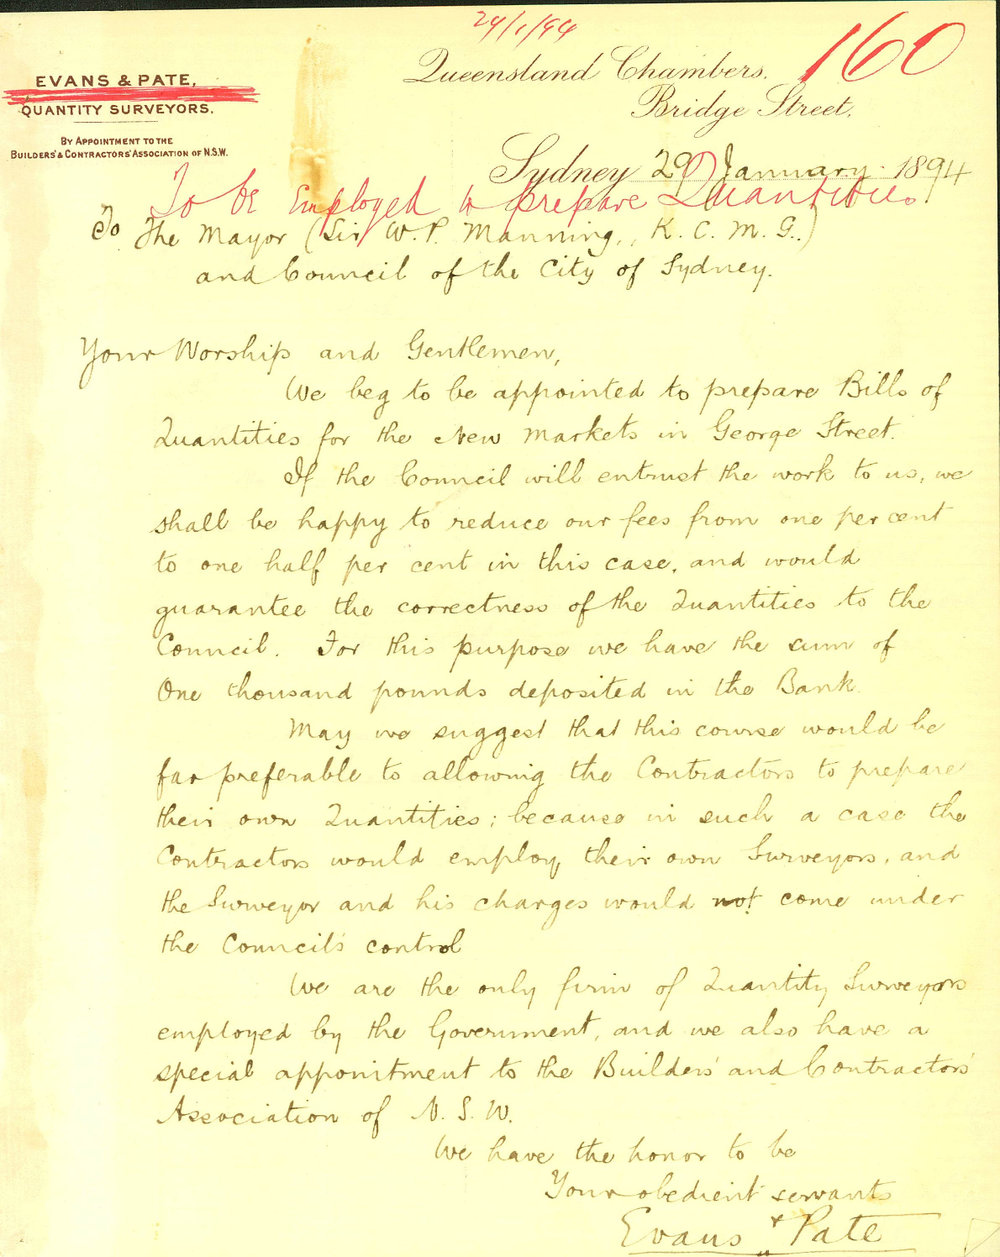 29/1/94
160
EVANS & PATE,
QUANTITY SURVEYORS.
BY APPOINTMENT TO THE
BUILDERS' & CONTRACTORS' ASSOCIATION OF N.S.W.
Queensland Chambers.
Bridge Street.
Sydney 29 January 1894
To be Employed to prepare Quantities.
To The Mayor (Sir W. P. Manning, K. C. M. G.)
and Council of the City of Sydney.
Your Worship and Gentlemen,
We beg to be appointed to prepare Bills of
Quantities for the New Markets in George Street.
If the Council will entrust the work to us, we
shall be happy to reduce our fees from one per cent
to one half per cent in this case, and would
guarantee the correctness of the Quantities to the
Council. For this purpose we have the sum of
One thousand pounds deposited in the Bank.
May we suggest that this course would be
far preferable to allowing the Contractors to prepare
their own Quantities; because in such a case the
Contractors would employ their own Surveyors, and
the Surveyor and his charges would not come under
the Council's control
We are the only firm of Quantity Surveyors
employed by the Government, and we also have a
special appointment to the Builders' and Contractors'
Association of N. S. W.
We have the honor to be
Your obedient servants
Evans & Pate